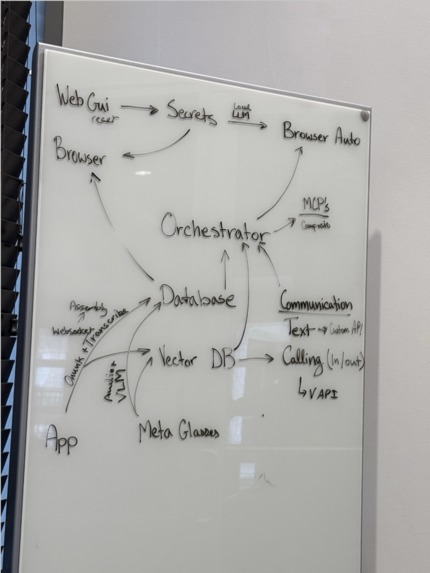 Web Gui → Secrets Local LLM → Browser Auto
react
Browser
Orchestrator
MCP's
Composio
Database
Assembly
Websocket
Chunk + Transcribe
Communication
Text → Custom API
Vector DB → Calling (in/out)
↳ VAPI
Audio +
VLM
App
Meta Glasses